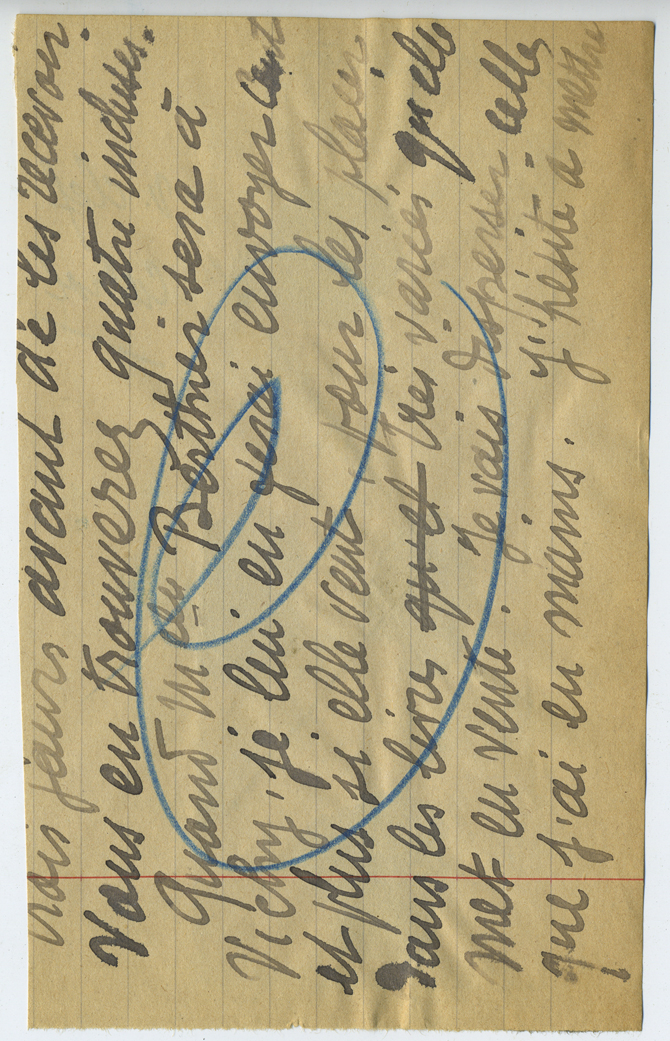 trois jours avant de les recevoir.
Vous en trouverez quatre incluses.
Quand Mme Berthier sera à
Vichy, je lui en ferai envoyer cent
et plus si elle veut, pour les placer
dans les livres qu'et très variés qu'elle
met en vente. Je vais disperser celles
que j'ai en mains. J'hésite à mettre